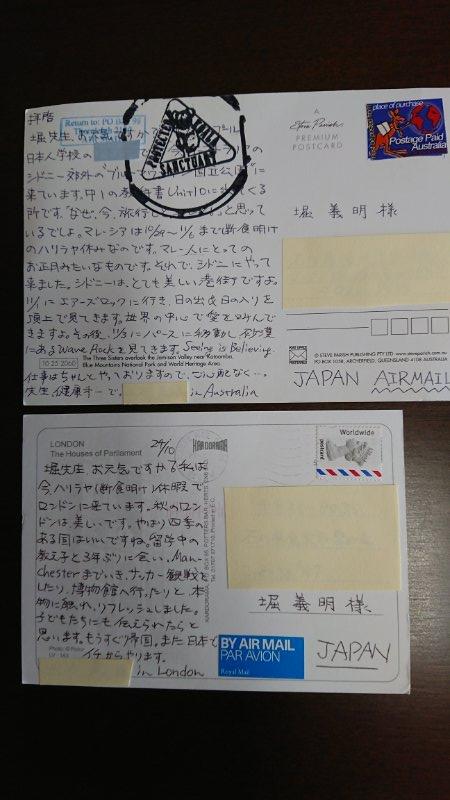 拝啓
Return to: PO Box
堀先生、お元気ですか
日本人学校の
シドニー郊外の
国立公園に
来ています。中1の教科書Unit10に出てくる
所です。なぜ、今、旅行
と思って
いるでしょ。マレーシアは10/29〜11/6まで断食明け
のハリラヤ休みなのです。マレー人にとっての
お正月みたいなものです。それで、シドニーにやって
来ました。シドニーは、とても美しい港街ですよ。
11/1にエアーズロックに行き、日の出&日の入りを
頂上で見てきます。世界の中心で愛を叫んで
きますよ。その後、11/3にパースに移動し、砂漠
にあるWave Rockを見てきます。Seeing is Believing.
The Three Sisters overlook the Jamison Valley near Katoomba,
Blue Mountains National Park and World Heritage Area
仕事はちゃんとやっておりますので、ご心配なく…。
先生、健康第一で。
in Australia
SANCTUARY
A
Steve Parish
PREMIUM
POSTCARD
place of purchase
Postage Paid
Australia
堀 義明 様
© STEVE PARISH PUBLISHING PTY LTD www.steveparish.com.au
PO BOX 1058, ARCHERFIELD, QUEENSLAND 4108 AUSTRALIA
JAPAN AIRMAIL
LONDON
The Houses of Parliament
24/10
堀先生、お元気ですか？私は
今、ハリラヤ(断食明け)休暇で
ロンドンに来ています。秋のロン
ドンは美しいです。やはり四季の
ある国はいいですね。留学中の
教え子と3年ぶりに会い、Man-
chesterまでいき、サッカー観戦を
したり、博物館へ行ったりと、本
物に触れ、リフレッシュしました。
子どもたちにも伝えられたらと
思います。もうすぐ帰国。また日本で
イチからやります。
in London
KARDORAMA
Worldwide
postcard
堀 義明 様
BY AIR MAIL
PAR AVION
Royal Mail
JAPAN